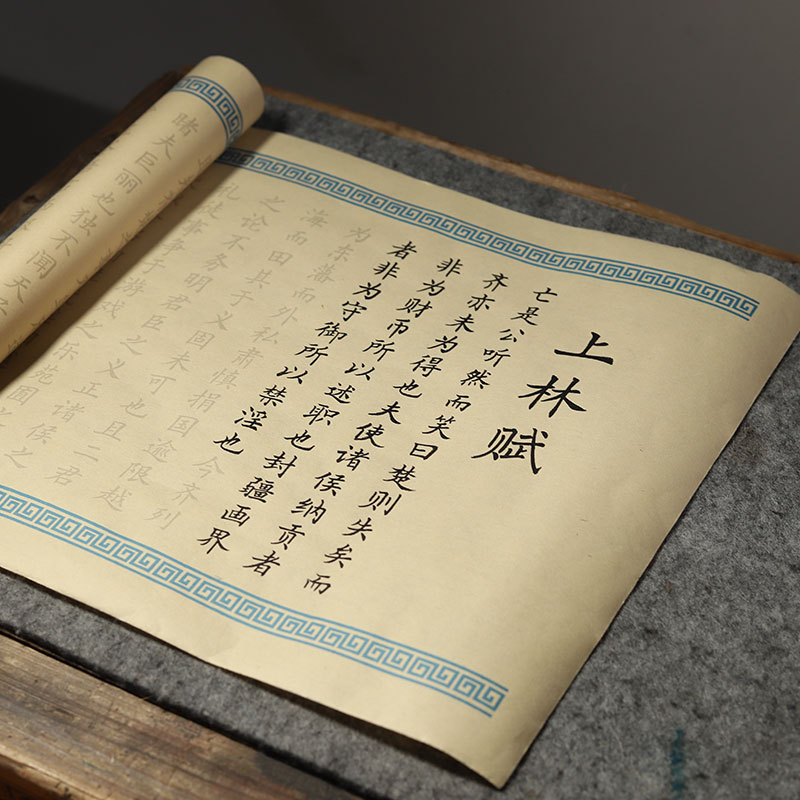 上林赋
亡是公听然而笑曰楚则失矣而
齐亦未为得也夫使诸侯纳贡者
非为财币所以述职也封疆画界
者非为守御所以禁淫也今齐列
为东藩而外私肃慎捐国逾限越
海而田其于义固未可也且二君
之论不务明君臣之义正诸侯之
礼徒事争于游戏之乐苑囿之
睹夫巨丽也独不闻天